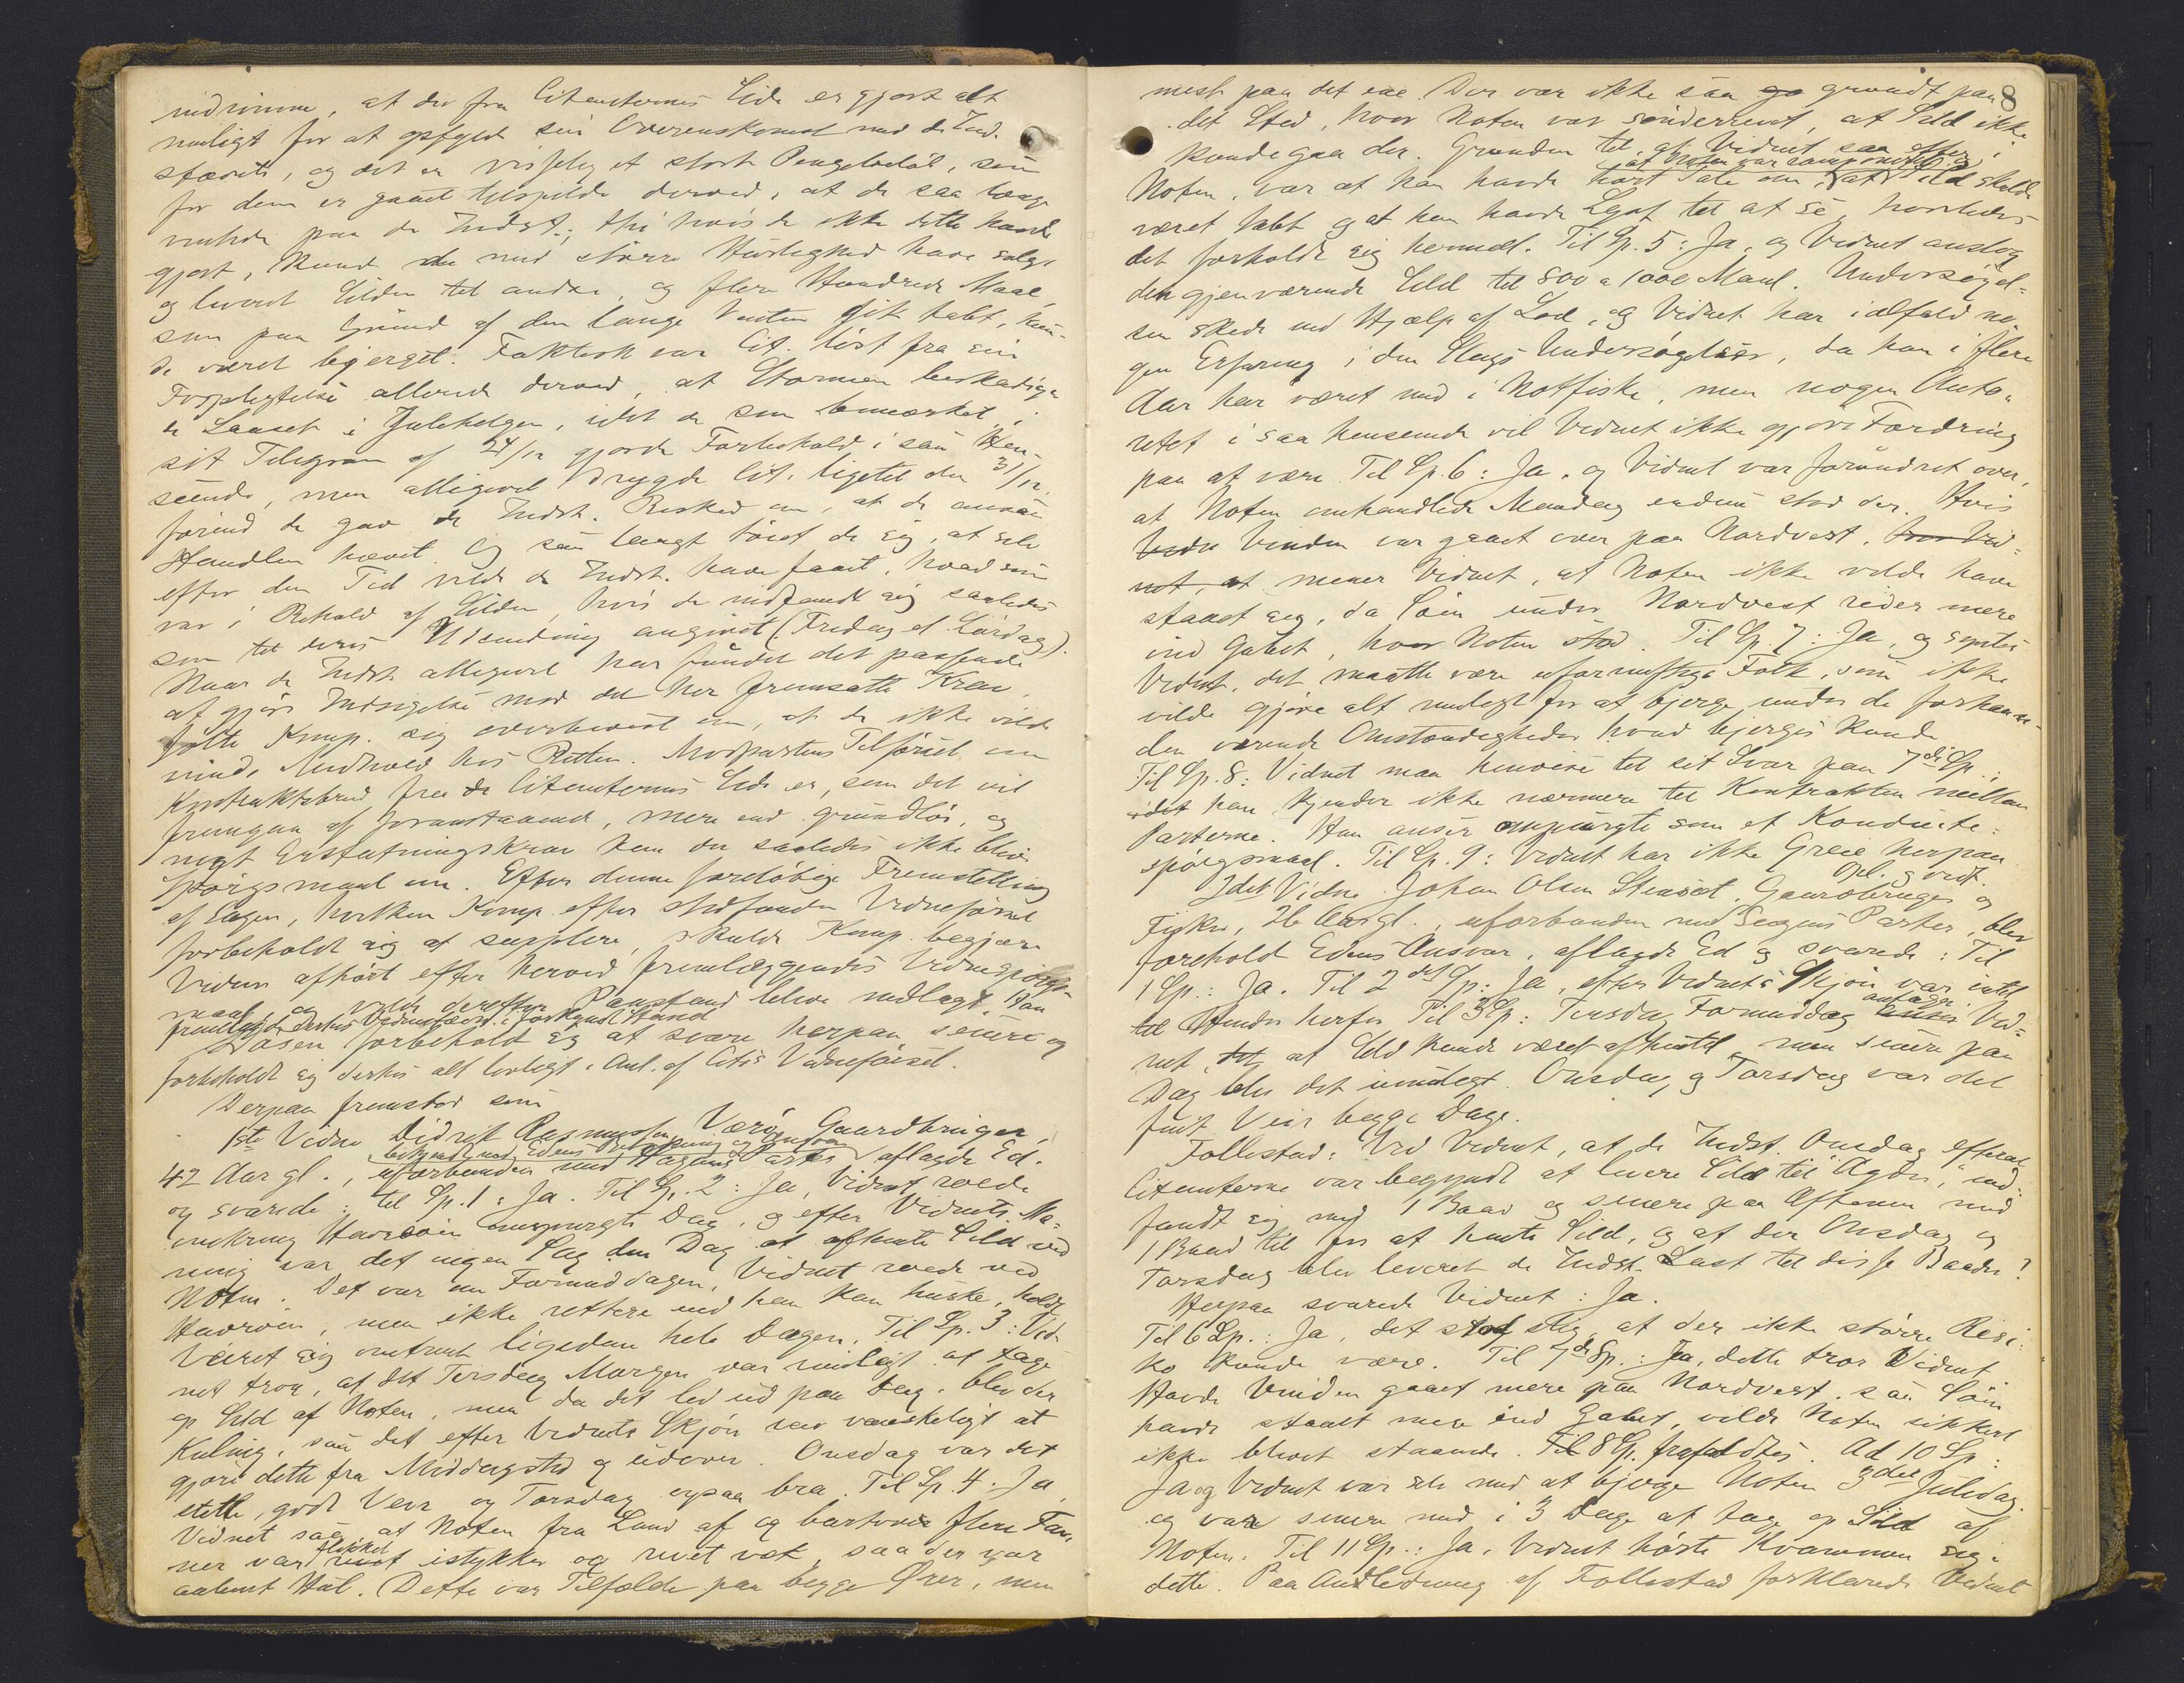 indrømme, at der fra Citanternes Side er gjort alt
muligt for at opfylde sin Overenskomst med de Ind-
stævnte, og det er visselig et stort Pengebeløb, som
for dem er gaaet tilspilde derved, at de saa længe
ventede paa de Indst.; thi hvis de ikke dette havde
gjort, kunde de med større Hurtighed have solgt
og leveret Silden til andre, og flere Hundrede Maal,
som paa Grund af den lange Venten gik tabt, kun-
de været bjerget. Faktisk var Cit. løst fra sin
Forpligtelse allerede derved, at Stormen beskadige-
de Laaset i Julehelgen, idet de som bemærket i
sit Telegram af 24/12 gjorde Forbehold i saa Hen-
seende, men alligevel drygde Cit. ligetil den 31/12
førend de gav de Indst. Besked om, at de ansaa
Handlen hævet. Og saa langt tøiet de sig, at selv
efter den Tid vilde de Indst. have faaet, hvad som
var i Behold af Silden, hvis de indfandt sig saaledes
som til deres Udsending angivet (Fredag el. Lørdag).
Naar de Indst. alligevel har fundet det passende
at gjøre Indsigelse mod det her fremsatte Krav,
følte Komp. sig overbevist om, at de ikke vilde
vinde Medhold hos Retten. Modpartens Tilførsel om
Kontraktsbrud fra de Citanternes Side er, som det vil
fremgaa af foranstaaende, mere end grundløs, og
noget Erstatningskrav kan der saaledes ikke blive
Spørgsmaal om. Efter denne foreløbige Fremstilling
af Sagen, hvilken Komp. efter stedfunden Vidneførsel
forbeholdt sig at supplere, skulde Komp. begjære
Vidner afhørt efter herved fremlæggendes Vidnespørgs-
maal, og vilde derefter Paastand blive nedlagt. Han
fremlagde derhos Vidnestævn. i forkyndt Stand
Aasen forbeholdt sig at svare herpaa senere og
forbeholdt sig derhos alt lovligt i Anl. af Cit.s Vidneførsel.
Derpaa fremstod som
1ste Vidne Didrik Rasmussen Værø, Gaardbruger,
bekjendt med Edens Betydning og Ansvar
42 Aar gl., uforbunden med Sagens Parter aflagde Ed.
og svarede: til Sp. 1: Ja. Til Sp. 2: Ja, Vidnet roede
omkring Havrøin omspurgte Dag, og efter Vidnets Me-
ning var det ingen Sag den Dag at afhente Sild ved
Noten. Det var om Formiddagen, Vidnet roede ved
Havrøin, men ikke rettere end han kan huske, holdt
Veiret sig omtrent ligedan hele Dagen. Til Sp. 3: Vid-
net tror, at det Tirsdag Morgen var muligt at tage
op Sild af Noten, men da det led ud paa Dag. blev der
Kuling, saa det efter Vidnets Skjøn var vanskeligt at
gjøre dette fra Middagstid og udover. Onsdag var det
stille, godt Veir og Torsdag ogsaa bra. Til Sp. 4: Ja
Vidnet saa, at Noten fra Land af og bortover flere Fav-
flækket
ner var revet istykker og revet væk, saa der var
aabent Hul. Dette var Tilfælde paa begge Ører, men
8
mest paa det ene. Der var ikke saa go grundt paa
det Sted, hvor Noten var sønderrevet, at Sild ikke
kunde gaa der. Grunden til, at Vidnet saa efter i
at Noten var ramponeret og
Noten, var at han havde hørt Tale om, at Sild skulde
været tabt og at han havde Lyst til at se, hvorledes
det forholdt sig hermed. Til Sp. 5: Ja, og Vidnet anslog
den gjenværende Sild til 800 a 1000 Maal. Undersøgel-
sen skede ved Hjælp af Lod, og Vidnet har ialfald no-
gen Erfaring i den Slags Undersøgelser, da han i flere
Aar har været med i Notfiske, men nogen Auto-
ritet i saa Henseende vil Vidnet ikke gjøre Fordring
paa at være. Til Sp. 6: Ja, og Vidnet var forundret over,
at Noten omhandlede Mandag endnu stod der. Hvis
Vidn Vinden var gaaet over paa Nordvest, tror Vid-
net, at mener Vidnet, at Noten ikke vilde have
staaet seg, da Søin under Nordvest rider mere
ind Gabet, hvor Noten stod. Til Sp. 7: Ja, og syntes
Vidnet, det maatte være ufornuftige Folk, som ikke
vilde gjøre alt muligt for at bjerge under de forhaan-
den værende Omstændigheder hvad bjerges kunde
Til Sp. 8: Vidnet maa henvise til sit Svar paa 7de Sp.,
idet han kjender ikke nærmere til Kontrakten mellem
Parterne. Han anser omspurgte som et Konduite-
spørgsmaal. Til Sp. 9: Vidnet har ikke Greie herpaa
Opl. g vedt.
2det Vidne Johan Olsen Stensæt, Gaardbruger og
Fisker, 26 Aar gl., uforbunden med Sagens Parter, blev
foreholdt Edens Ansvar, aflagde Ed og svarede: Til
1 Sp.: Ja. Til 2det Sp: Ja, efter Vidnets Skjøn var intet
til Hinder herfor. Til 3 Sp: Tirsdag Formiddag antager Vid-
net, at Sild kunde været afhentet, men senere paa
Dag blev det umuligt. Onsdag og Torsdag var det
fint Veir begge Dage.
Follestad: Ved Vidnet, at de Indst. Onsdag efterat
Citanterne var begyndt at levere Sild til "Agder", ind-
fandt sig med 1 Baad og senere paa Aftenen med
1 Baad til for at hente Sild, og at der Onsdag og
Torsdag blev leveret de Indst. Last til disse Baade?
Herpaa svarede Vidnet: Ja.
Til 6 Sp.: Ja, det stod slig, at der ikke større Risi-
ko kunde være. Til 7de Sp.: Ja, dette tror Vidnet
Havde Vinden gaaet mere paa Nordvest, saa Søin
havde staaet mere ind Gabet, vilde Noten sikkert
ikke blevet staaende. Til 8 Sp. frafaldtes. Ad 10 Sp:
Ja og Vidnet var selv med at bjerge Noten 3die Juledag.
og var senere med i 3 Dage at tage op Sild af
Noten. Til 11 Sp.: Ja, Vidnet hørte Kvammen sige
dette. Paa Anledning af Follestad forklarede Vidnet